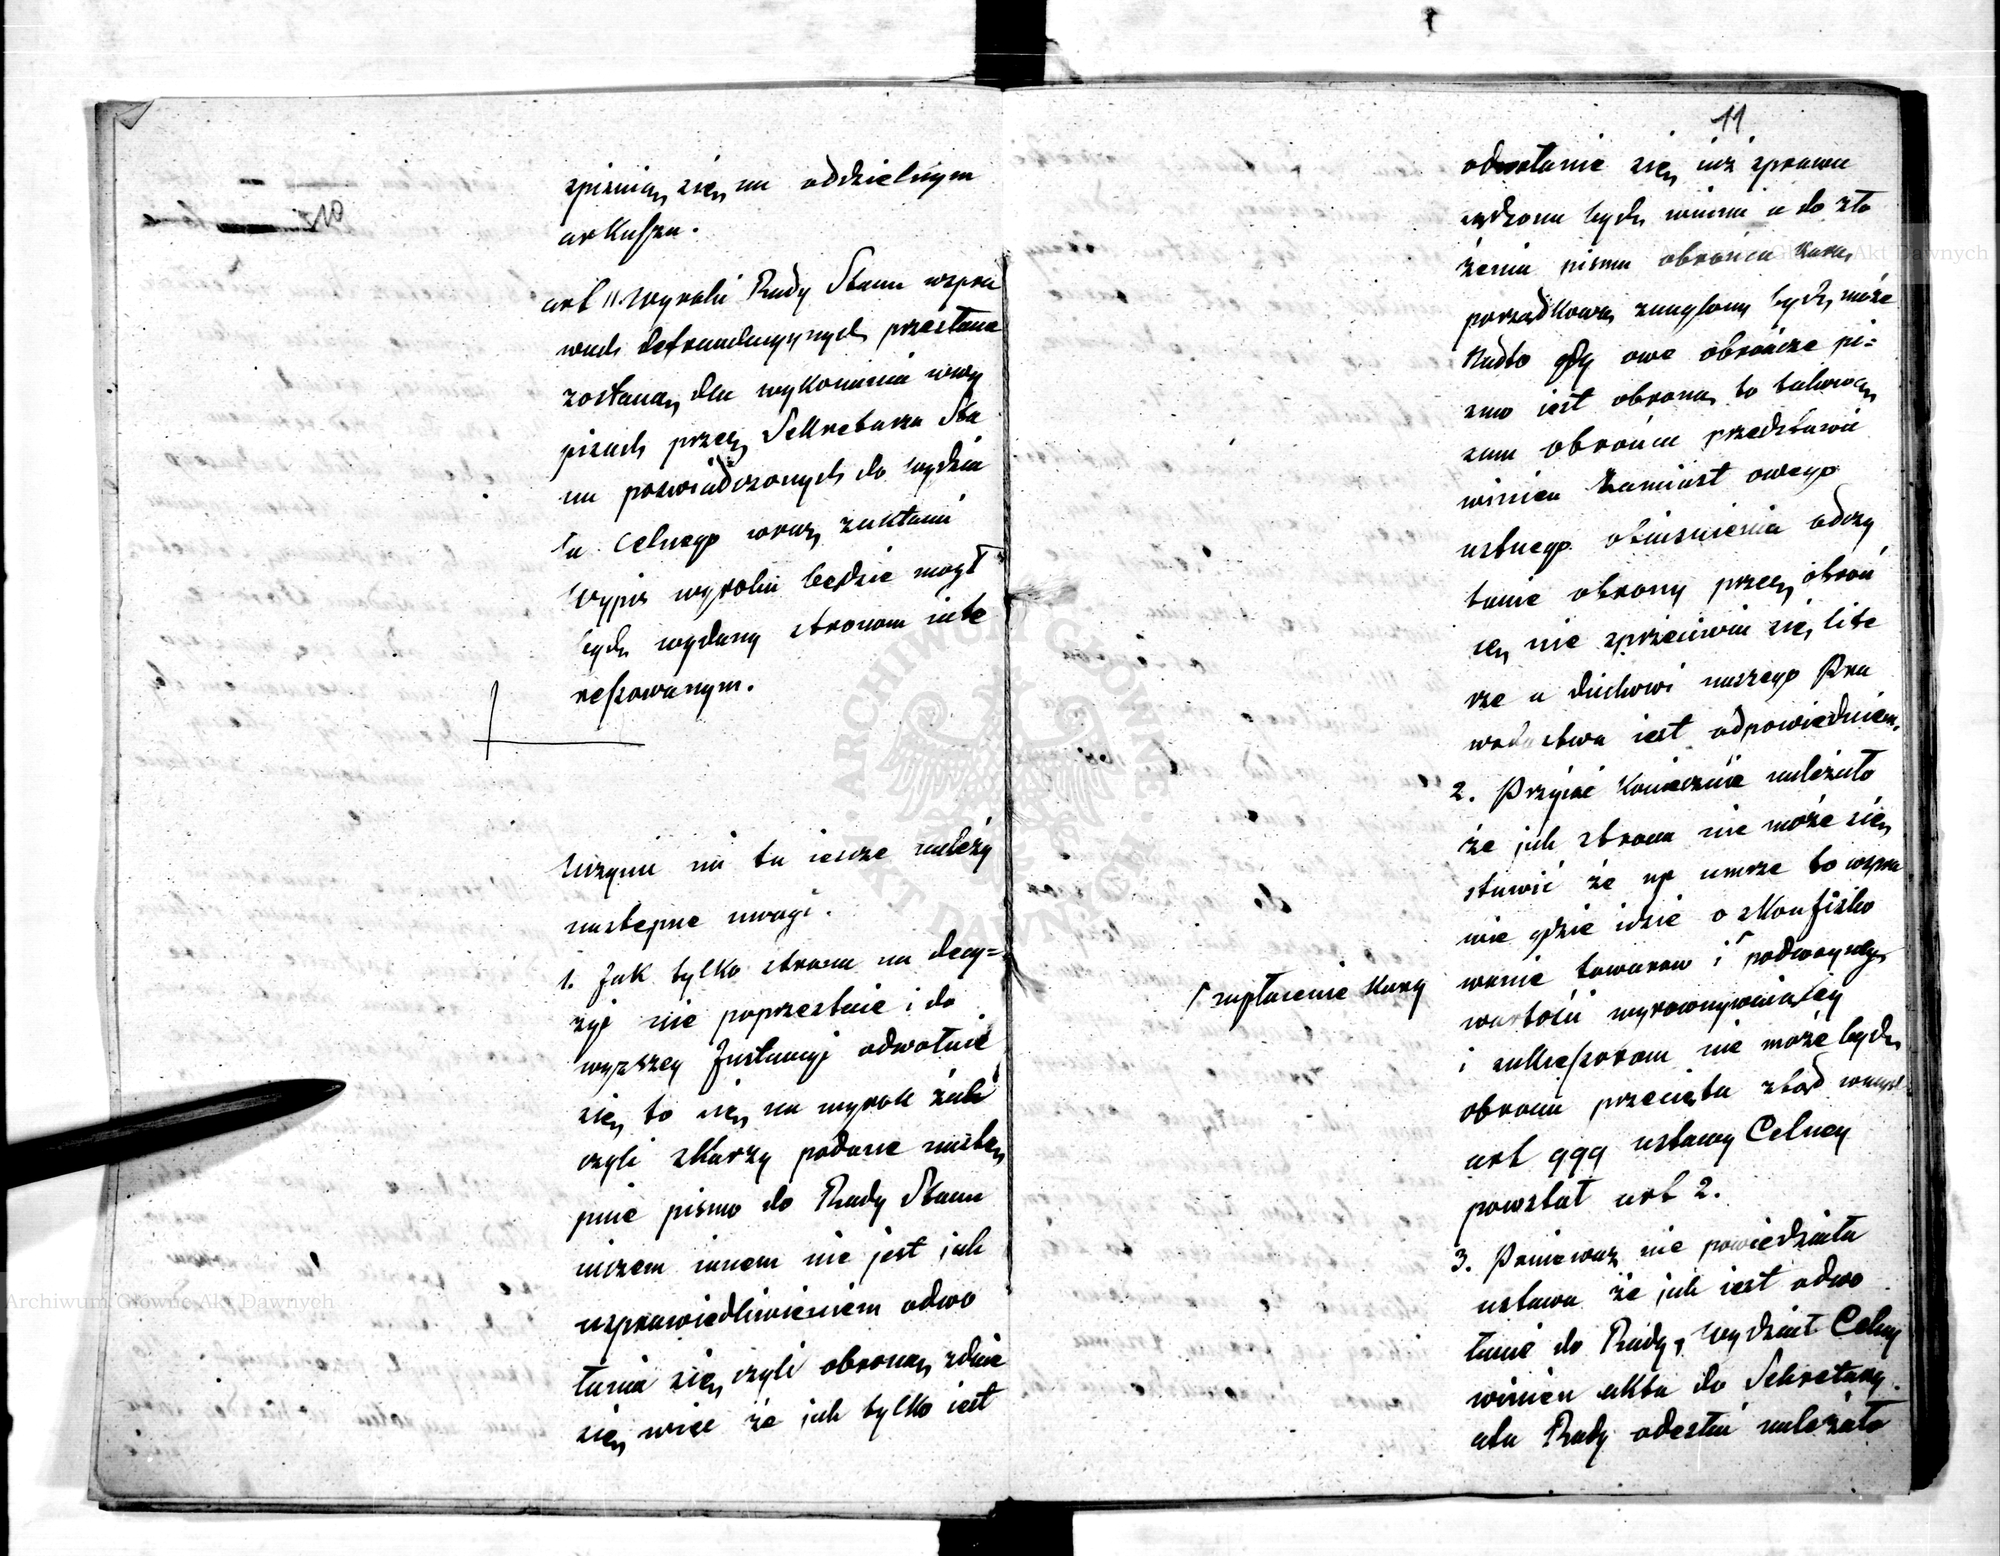 spisują się na oddzielnym
arkuszu.
art 11. Wyroki Rady Stanu wspra
wach defraudacyjnych przesłane
zostaną dla wykonania wwy
pisach przez Sekretarza Sta
nu poświadczonych do wydzia
łu Celnego wraz zaktami
Wypis wyroku będzie mógł
bydź wydany stronom inte
reszowanym.
Uczynić mi tu iescze należy
nastepne uwagi.
1. Jak tylko strona na decy=
zyi nie poprzestaie i do
wyzszey Instancyi odwołuie
się to się na wyrok żali
czyli skarzy podane nastę
pnie pismo do Rady Stanu
niczem innem nie jest jak
usprawiedliwieniem odwo
łania się czyli obroną zdaie
się więc że jak tylko iest
11
odwołanie się iuż sprawa
sądzona bydź winna a do zło
żenia pisma obrońca karą
porządkową znaglony bydź może
Nadto gdy owe obrończe pi=
smo jest obroną to takową
sam obrońca przedstawić
winien Zamiast owego
ustnego obiasnienia odczy
tanie obrony przez obroń
cę nie sprzeciwia się lite
rze a duchowi naszego Pra
wodastwa iest odpowiedniem.
2. Przyiąć koniecznie należało
że jak strona nie może się
stawić że np umrze to wspra
wie gdzie idzie o skonfisko
wanie towarow i ⌈ podwoyney
⌈ zapłacenie kary
wartości wyrownywaiącey
i sukceszorom nie może bydź
obrona przecięta ztąd
art 999 ustawy Celney
powstał art 2.
3. Ponieważ nie powiedziała
ustawa że jak iest odwo
łanie do Rady, Wydział Celny
winien akta do Sekretary
atu Rady odesłać należało
Archiwum Główne Akt Dawnych
Archiwum Główne Akt Dawnych
ARCHIWUM GŁÓWNE AKT DAWNYCH